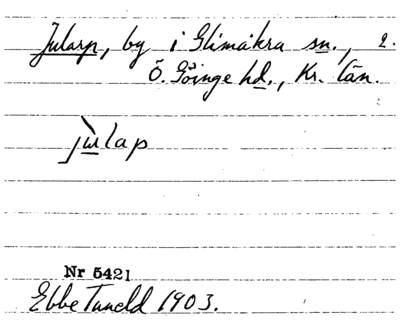 Jularp, by i Glimåkra sn., 2.
Ö. Göinge hd., Kr. län.
jùlap
Nr 5421
Ebbe Tuneld 1903.